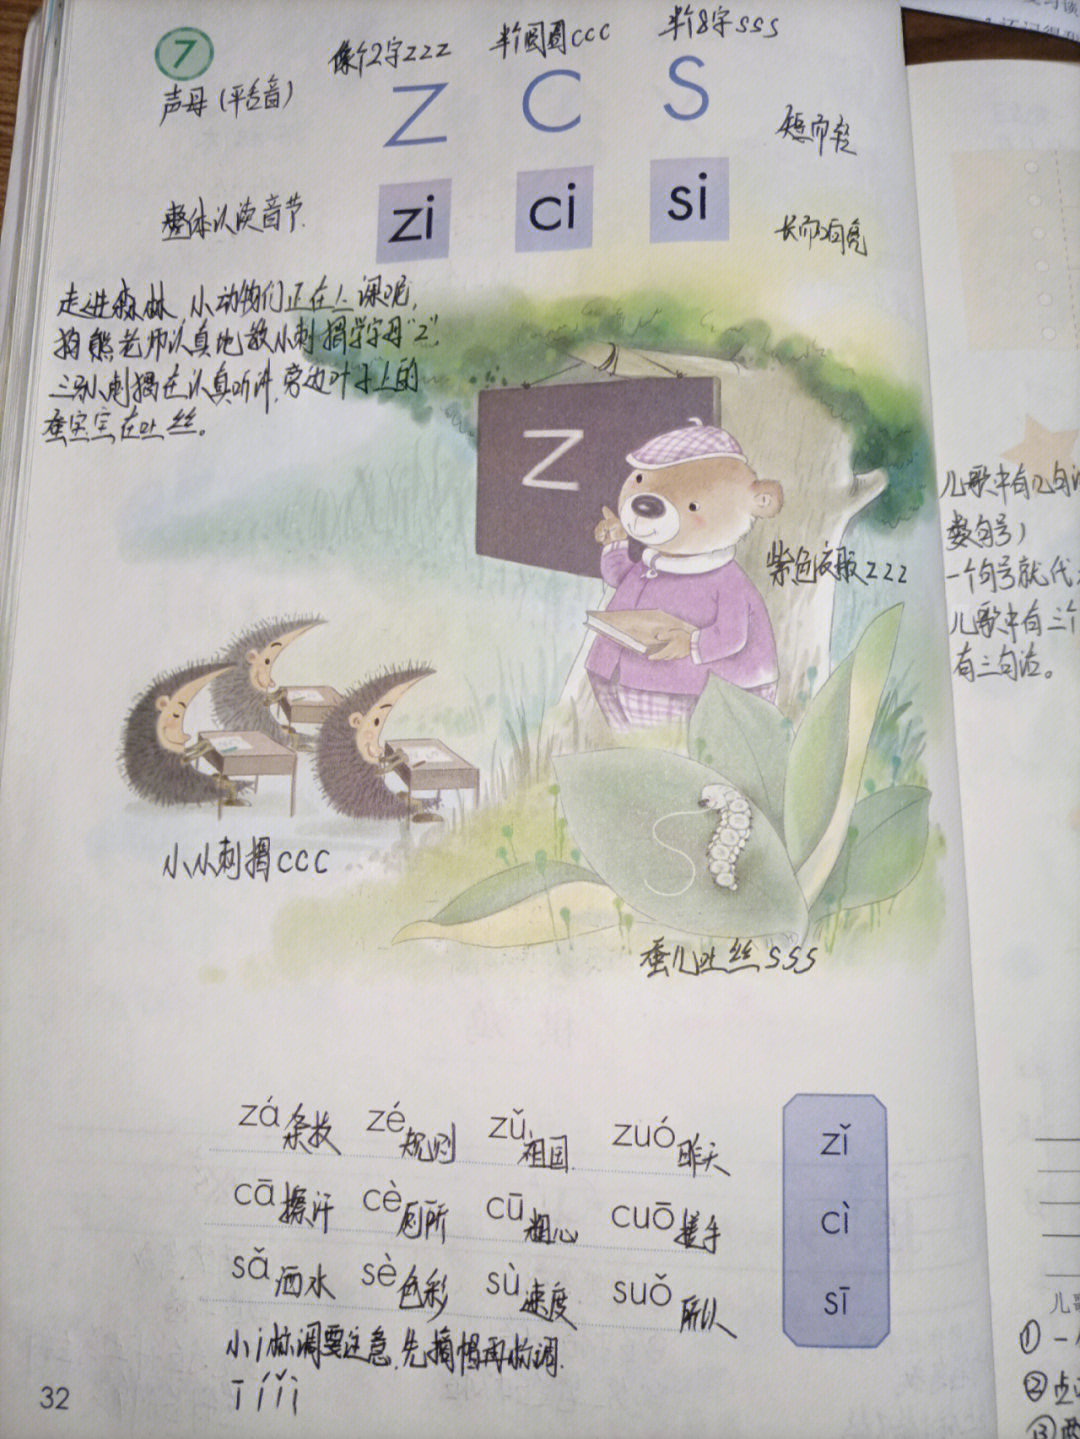 7
像个2字zzz 半个圆圈ccc 半个8字sss
声母（平舌音） z c s 短而轻
整体认读音节. zi ci si 长而响亮
走进森林，小动物们正在上课呢，
狗熊老师认真地教小刺猬学字母“z”，
三只小刺猬在认真听讲，旁边叶子上的
蚕宝宝在吐丝。
z
紫色衣服zzz
小小刺猬ccc
蚕儿吐丝sss
zá杂技 zé规则 zǔ祖国 zuó昨天
cā擦汗 cè厕所 cū粗心 cuō搓手
sǎ洒水 sè色彩 sù速度 suǒ所以
zǐ
cì
sī
小i标调要注意，先摘帽再标调.
ī í ǐ ì
32
儿歌中有几句
数句号）
一个句号就代
儿歌中有三个
有三句话。
儿
① 一
②
③